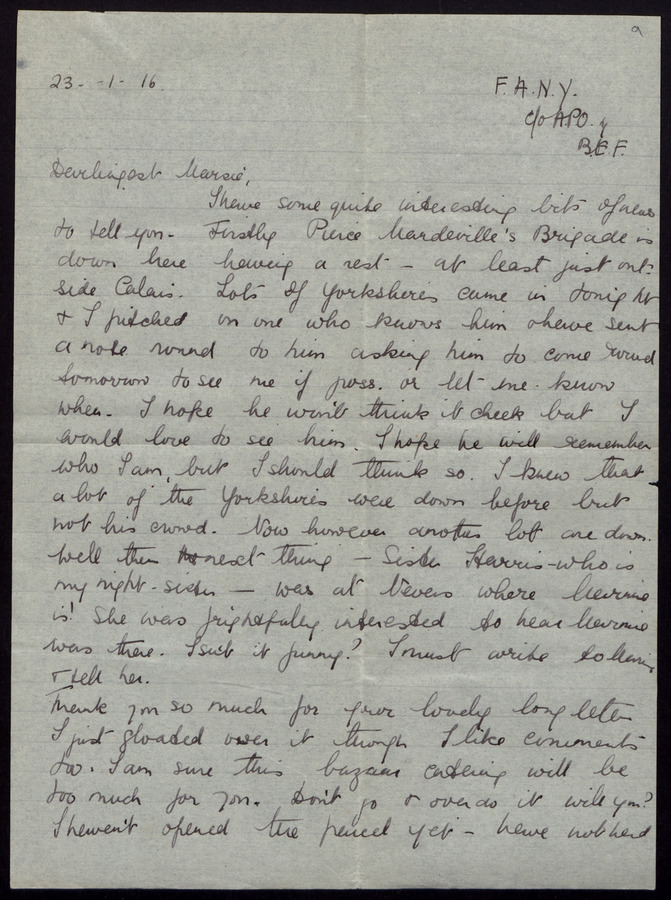 9
23 - -1- 16.
F.A.N.Y.
c/o APO. 4
B.E.F.
Darlingest Marsie,
I have some quite interesting bits of news
to tell you - Firstly Pierce Mandeville's Brigade is
down here having a rest - at least just out-
side Calais. Lots of Yorkshires came in tonight
& I pitched on one who knows him & have sent
a note round to him asking him to come round
tomorrow to see me if poss. or let me know
when. I hope he won't think it cheek but I
would love to see him. I hope he will remember
who I am, but I should think so. I knew that
a lot of the Yorkshires were down before but
not his crowd. Now however another lot are down.
Well then next thing - Sister Harris - who is
my night-sister - was at Nevers where
is! She was frightfully interested to hear
was there. Isn't it funny? I must write to
& tell her.
Thank you so much for your lovely long letter
I just gloated over it though I like comments
too. I am sure this bazaar catering will be
too much for you. Don't go & overdo it will you?
I haven't opened the parcel yet - have not had